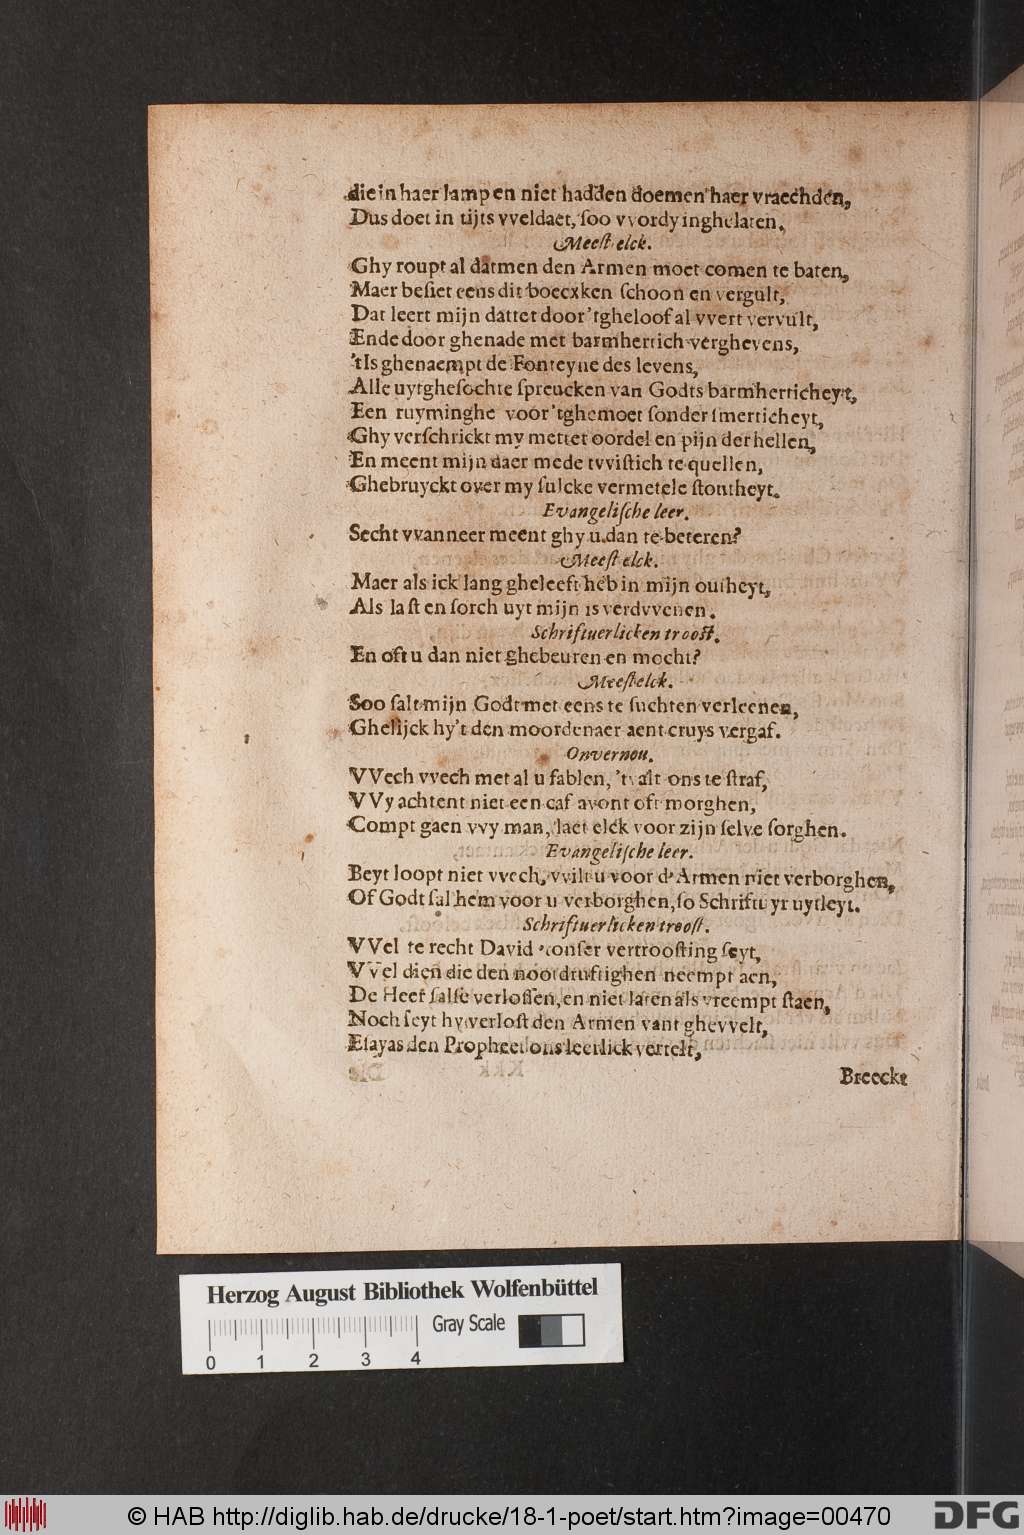 die in haer lampen niet hadden doemen haer vraechden,
Dus doet in tijts vveldaet, soo vvordy inghelaten.
Meest elck.
Ghy roupt al datmen den Armen moet comen te baten,
Maer besiet eens dit boecxken schoon en vergult,
Dat leert mijn dattet door 'tgheloof al vvert vervult,
Ende door ghenade met barmhertich verghevens,
'tIs ghenaempt de Fonteyne des levens,
Alle uytghesochte spreucken van Godts barmherticheyt,
Een ruyminghe voor 'tghemoet sonder smerticheyt,
Ghy verschrickt my mettet oordel en pijn der hellen,
En meent mijn daer mede tvvistich te quellen,
Ghebruyckt over my sulcke vermetele stoutheyt.
Evangelische leer.
Secht vvanneer meent ghy u dan te beteren?
Meest elck.
Maer als ick lang gheleeft heb in mijn outheyt,
Als last en sorch uyt mijn is verdvvenen.
Schriftuerlicken troost.
En oft u dan niet ghebeuren en mocht?
Meest elck.
Soo salt mijn Godt met eens te suchten verleenen,
Ghelijck hy't den moordenaer aent cruys vergaf.
Onvernou.
VVech vvech met al u fablen, 't valt ons te straf,
VVy achtent niet een caf avont oft morghen,
Compt gaen vvy man, laet elck voor zijn selve sorghen.
Evangelische leer.
Beyt loopt niet vvech, vvilt u voor d'Armen niet verborghen,
Of Godt sal hem voor u verborghen, so Schriftuyr uytleyt.
Schriftuerlicken troost.
VVel te recht David 'tonser vertroosting seyt,
VVel dien die den nootdruftighen neempt aen,
De Heer salse verlossen, en niet laten als vreempt staen,
Noch seyt hy verlost den Armen vant ghevvelt,
Esayas den Propheet ons leerlick vertelt,
Breeckt
Herzog August Bibliothek Wolfenbüttel
Gray Scale
0 1 2 3 4
© HAB http://diglib.hab.de/drucke/18-1-poet/start.htm?image=00470
DFG